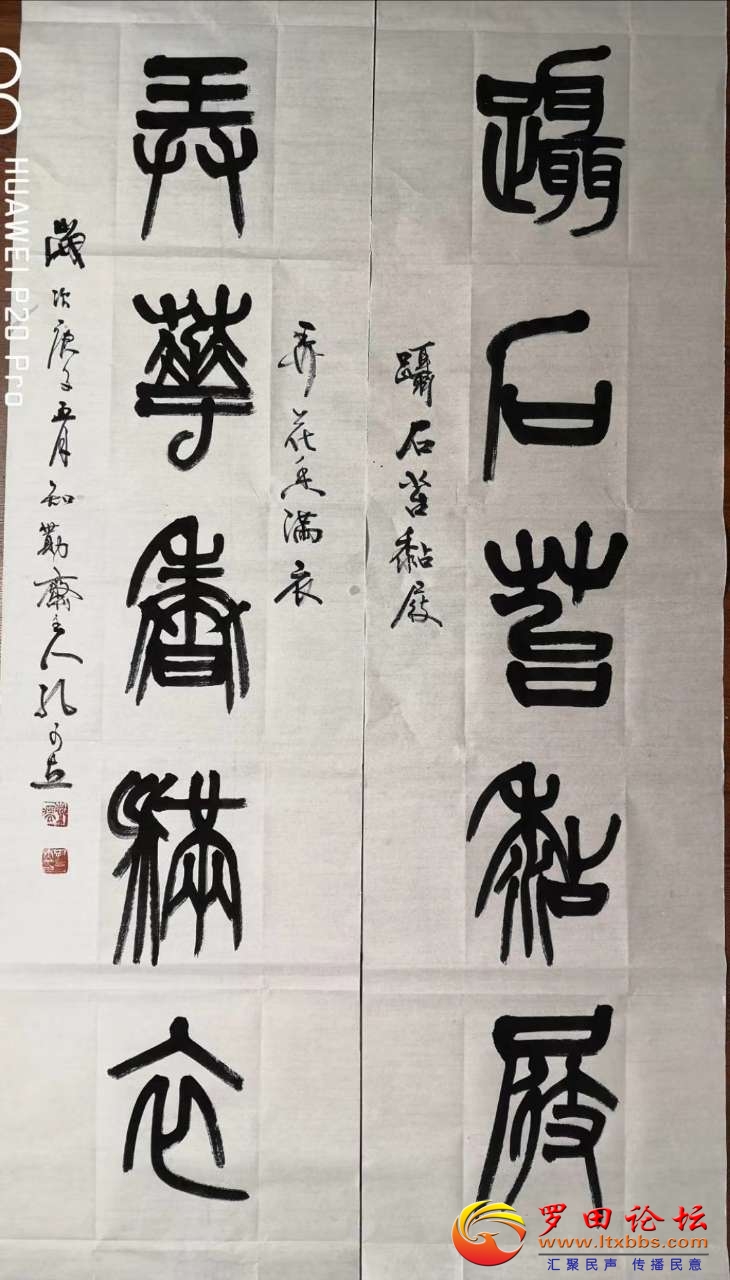 躡石苔黏屐
躡石苔黏屐
弄花香滿衣
弄華香滿衣
歲次庚子五月知勤齋主人孔
HUAWEI P20 Pro
罗田论坛
www.ltxbbs.com
汇聚民声 传播民意